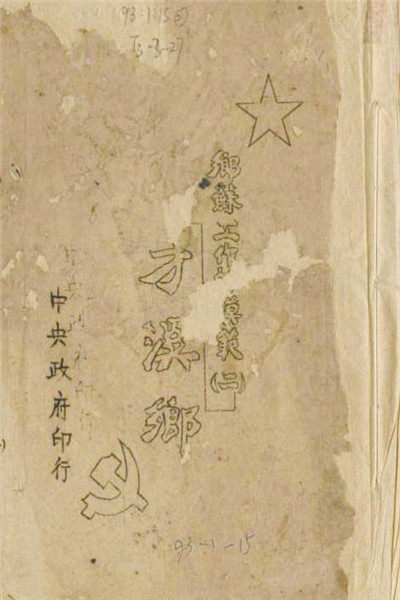 93-1-15②
鄉蘇工作模範(二)
才溪鄉
中央政府印行
93-1-15